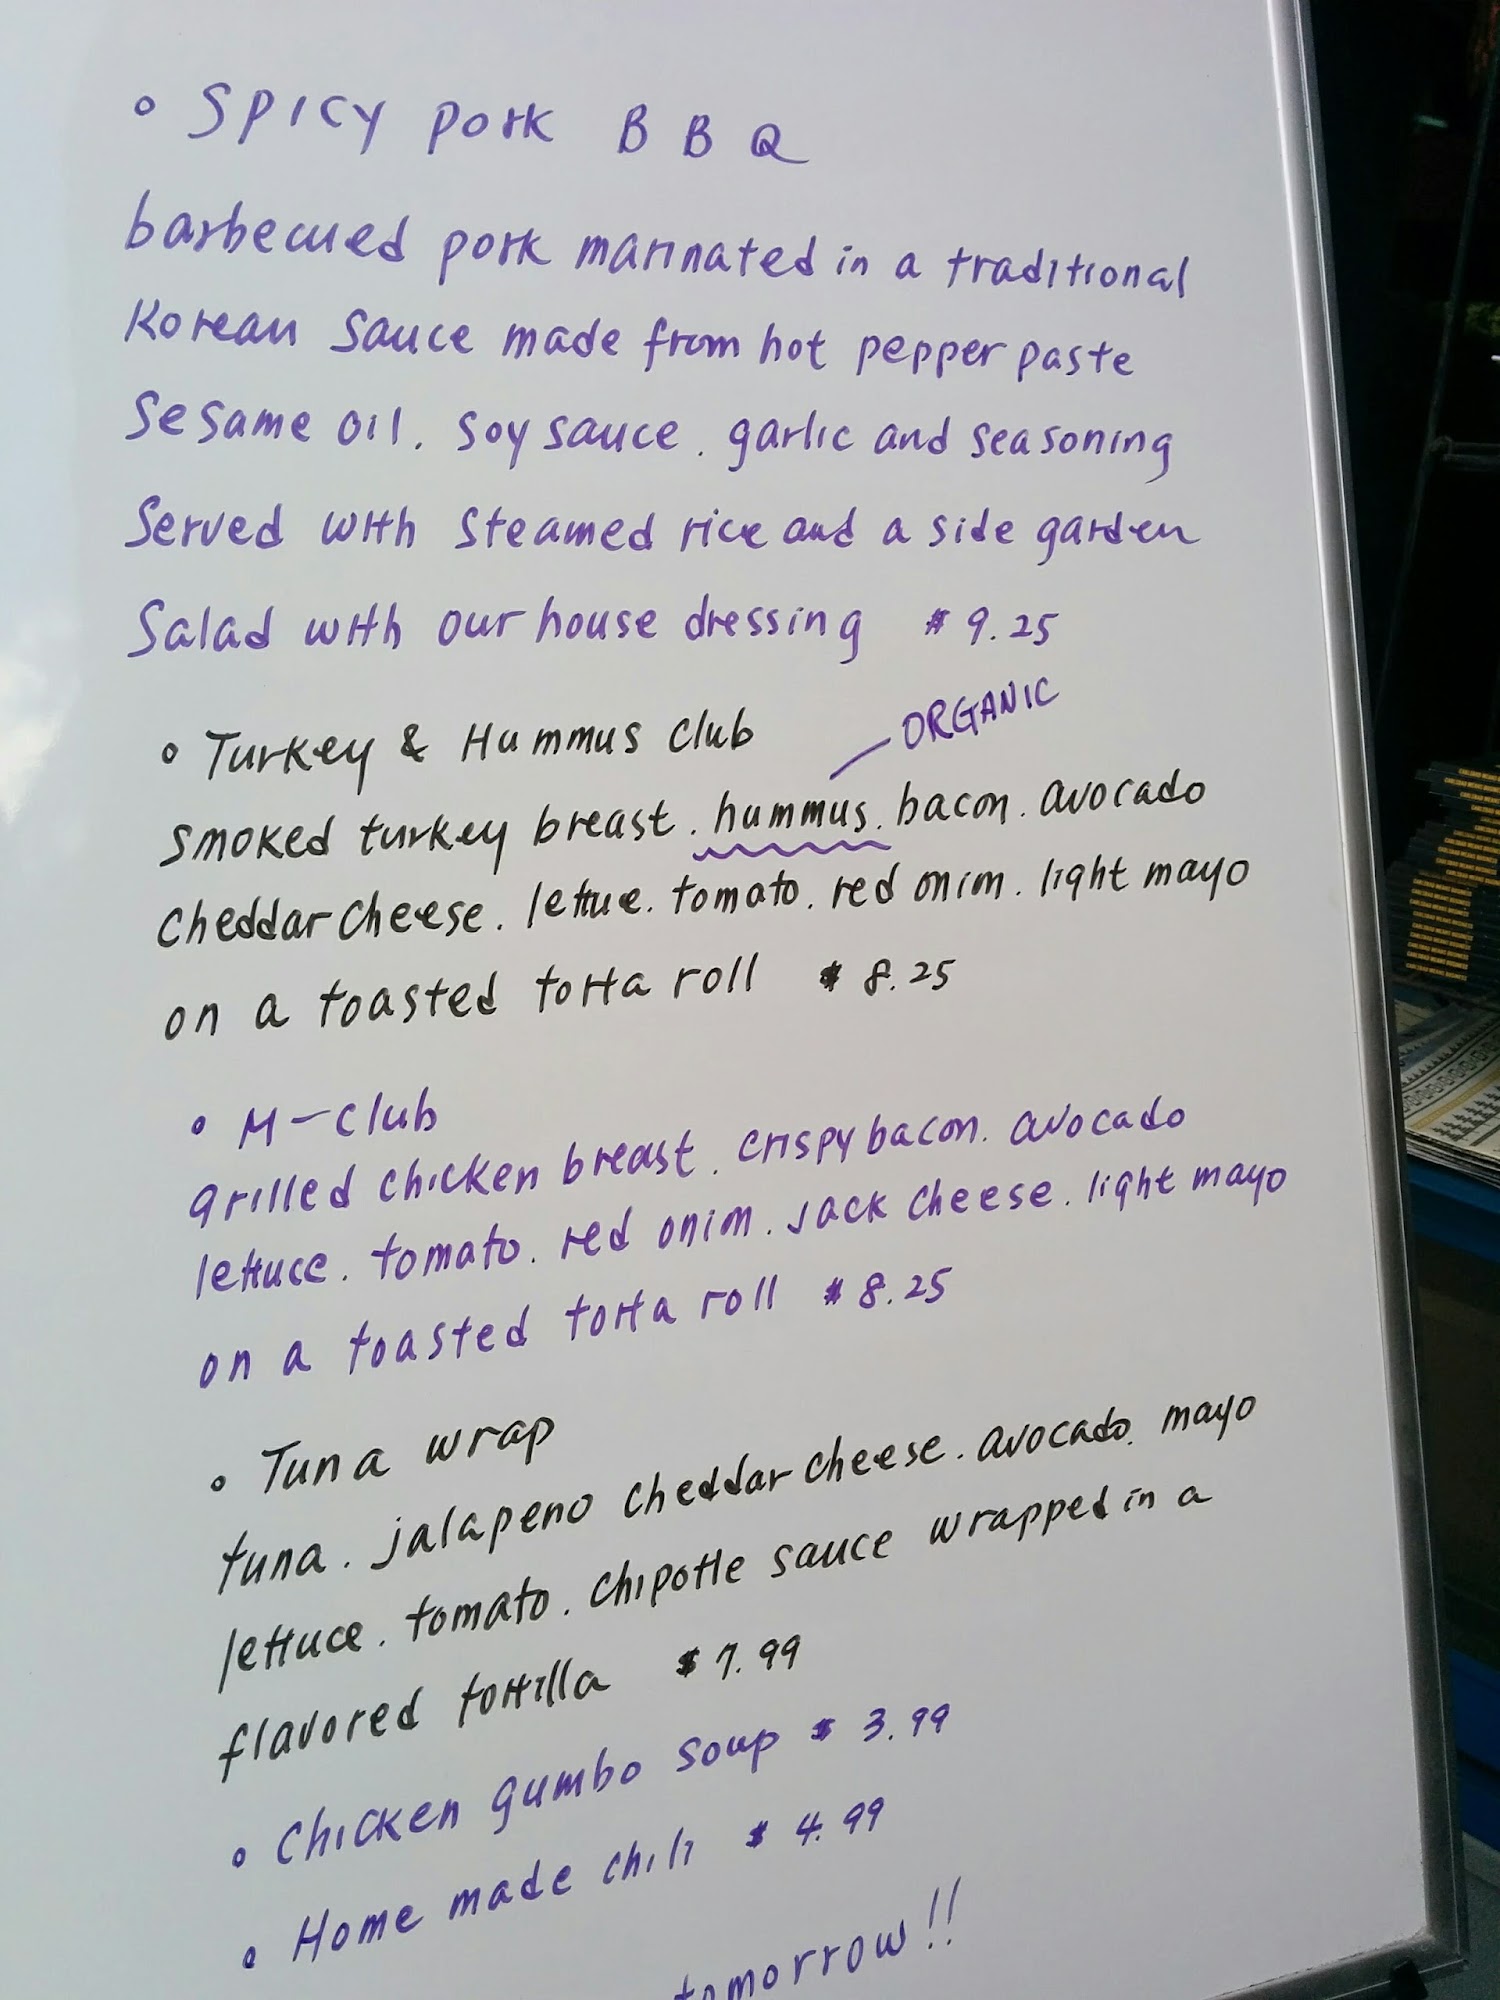 ° Spicy pork BBQ
barbecued pork marinated in a traditional
Korean sauce made from hot pepper paste
Sesame oil. soy sauce. garlic and seasoning
Served with steamed rice and a side garden
Salad with our house dressing $9.25
ORGANIC
° Turkey & Hummus Club
smoked turkey breast. hummus. bacon. avocado
cheddar cheese. lettue. tomato. red onion. light mayo
on a toasted torta roll $8.25
° M-Club
grilled chicken breast. crispy bacon. avocado
lettuce. tomato. red onion. Jack cheese. light mayo
on a toasted torta roll $8.25
° Tuna wrap
tuna. jalapeno cheddar cheese. avocado. mayo
lettuce. tomato. chipotle sauce wrapped in a
flavored tortilla $7.99
° Chicken gumbo soup $3.99
° Home made chili $4.99
tomorrow!!